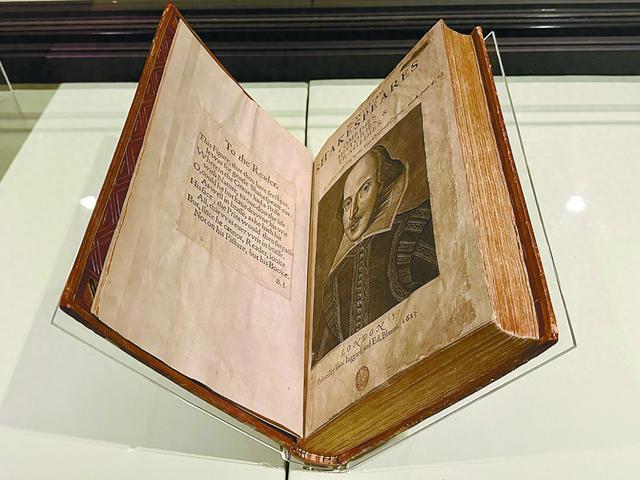 To the Reader.
This Figure, that thou here seest put,
It was for gentle Shakespeare cut;
Wherein the Grauer had a strife
with Nature, to out-doo the life :
O, could he but haue drawne his wit
As well in brasse, as he hath hit
His face ; the Print would then surpasse
All, that vvas euer vvrit in brasse.
But, since he cannot, Reader, looke
Not on his Picture, but his Booke.
B. I.
SHAKESPEARES
LONDON
Printed by Isaac Iaggard, and Ed. Blount. 1623